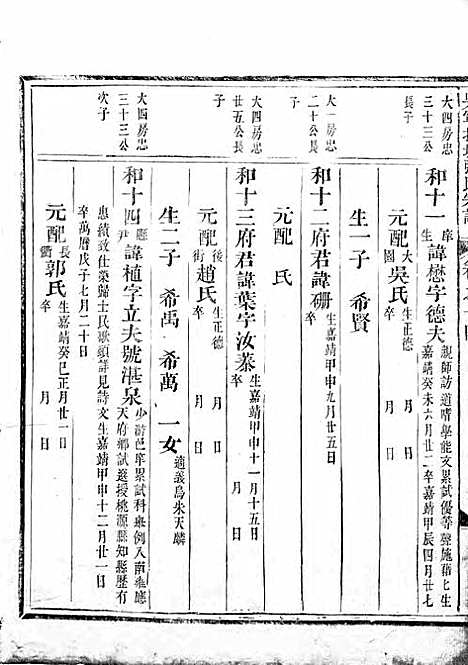 大四房忠
三十三公
長子
和十一庠生諱懋字德夫
親師訪道嗜學能文累試優等聲施藉七生
嘉靖癸未六月廿二卒嘉靖甲辰四月廿七
元配大園吳氏生正德 卒 月 日
生一子 希賢
大一房忠
二十公長
子
和十二府君諱硼生嘉靖甲申九月廿五日 卒
元配 氏
大四房忠
廿五公長
子
和十三府君諱葉字汝蓁生嘉靖甲申十一月十五日 卒 月 日
元配後街趙氏生正德 卒 月 日
生二子 希禹 希萬 一女適義烏朱天麟
大四房忠
三十三公
次子
和十四縣尹諱植字立夫號湛泉
少游邑庠累試科舉例入南雍應
天府鄉試選授桃源縣知縣歷有
惠績致仕榮歸士民歌頌詳見詩文生嘉靖甲申十二月廿一日
卒萬曆戊子七月二十日
元配長衢郭氏生嘉靖癸巳正月廿一日 卒 月 日